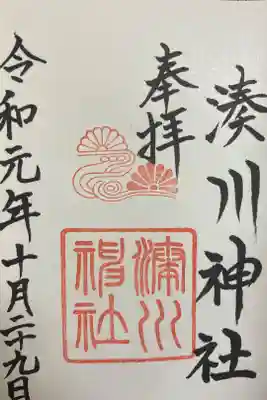 湊川神社
奉拝
湊川神社
令和元年十月二十九日